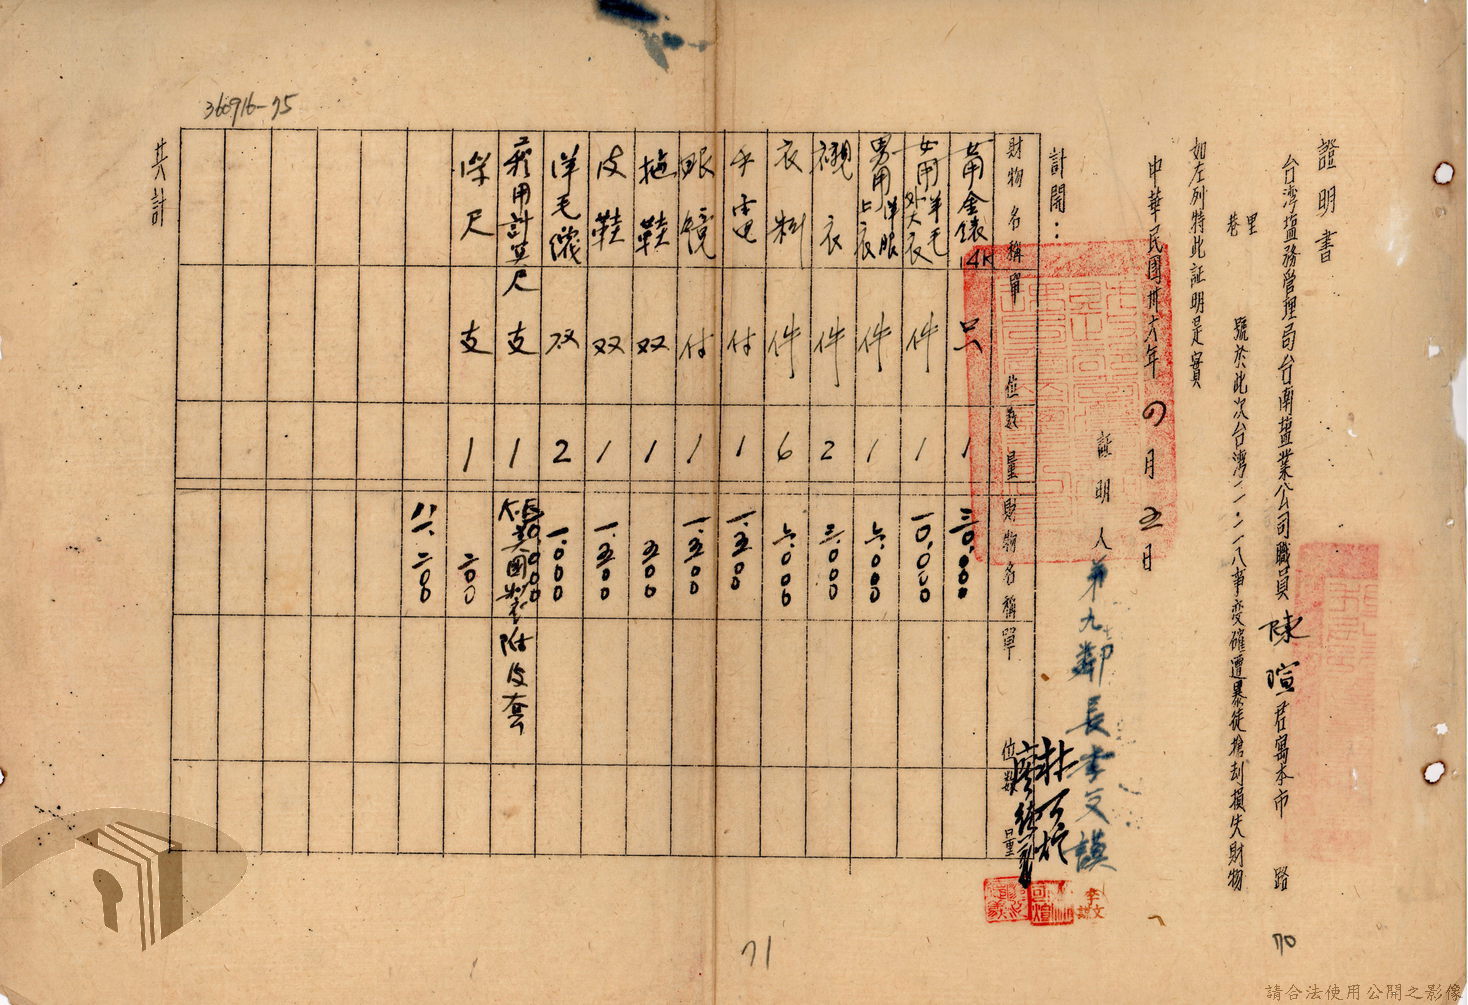 證明書
台灣塩務管理局台南塩業公司職員陳暄君寓本市　路
里
巷
號於此次台灣二・二一八事变確遭暴徒搶刦損失財物
如左列特此証明是實
中華民國卅六年四月五日
証明人第九鄰長李文謨
林可燈
計開：
財物名稱單位數量財物名稱單位數量
女用金錶14K 只 1 三〇.〇〇〇
女用洋毛外大衣 件 1 一〇.〇〇〇
男用洋服上衣 件 1 六.〇〇〇
襯衣 件 2 三.〇〇〇
衣料 件 6 六.〇〇〇
手電 付 1 一.五〇〇
眼鏡 付 1 一.五〇〇
拖鞋 双 1 五〇〇
皮鞋 双 1 一.五〇〇
洋毛襪 双 2 一.〇〇〇
用計算尺 支 1 K.E 20.000 美國製附皮套
尺 支 1 二〇〇
八一.二〇〇
共計
360916-75
71
70
李文謨
請合法使用公開之影像